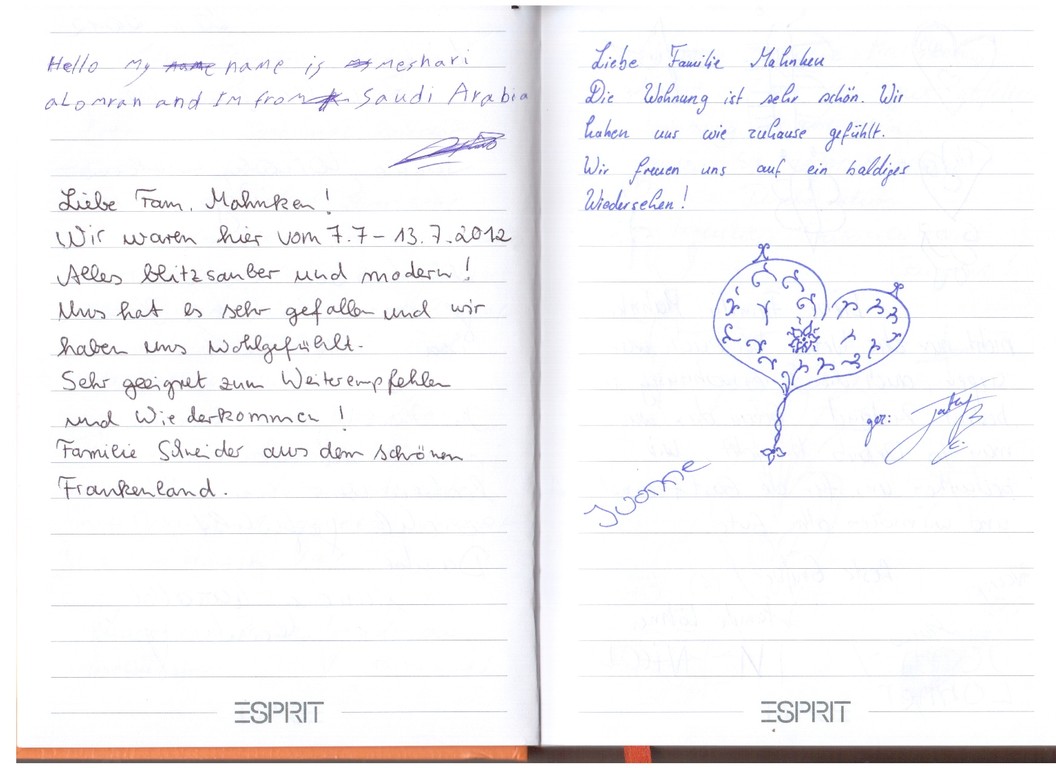 Hello my name is meshari
alomran and Im from Saudi Arabia
Liebe Fam. Mahnken!
Wir waren hier vom 7.7 – 13.7.2012
Alles blitzsauber und modern!
Uns hat es sehr gefallen und wir
haben uns wohlgefühlt.
Sehr geeignet zum Weiterempfehlen
und Wiederkommen!
Familie Schneider aus dem schönen
Frankenland.
ESPRIT
Liebe Familie Mahnken
Die Wohnung ist sehr schön. Wir
haben uns wie zuhause gefühlt.
Wir freuen uns auf ein baldiges
Wiedersehen!
gez:
Yvonne
ESPRIT